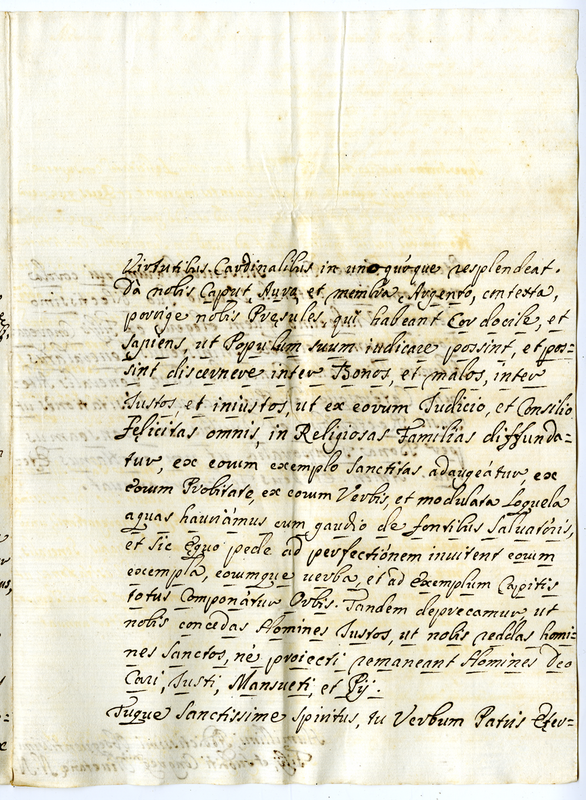 Virtutibus Cardinalibus in unoquóque resplendeat.
Dà nobis Caput Aura, et membra Argento, contexta,
porrige nobis Pręsules, qui habeant Cor docile, et
sapiens, ut Populum suum iudicare possint, et pos-
sint discernere inter Bonos, et malos, inter
Iustos, et iniùstos, ut ex eorum Iudicio, et Consilio
Fęlicitas omnis, in Religiosas Familias diffunda-
tur, ex eorum exemplo Sanctitas adaugeàtur, ex
eorum Probitate, ex eorum Verbis, et modulata Loquela
aquas hauriámus cum gaudio de fontibus Saluatóris,
et sic Ęquo pede ad perfectiónem inuitent eorum
exempla, eorumque uerba, et ad Exemplum Capitis
totus Componátur Orbis. Tandem deprecamur ut
nobis concedas Homines Iustos, ut nobis reddas homi-
nes Sanctos, nè proiecti remaneant Homines Deo
Cari, Iusti, Mansueti, et Pij.
Tuque Sanctissime Spiritus, tu Verbum Patris Ęter-